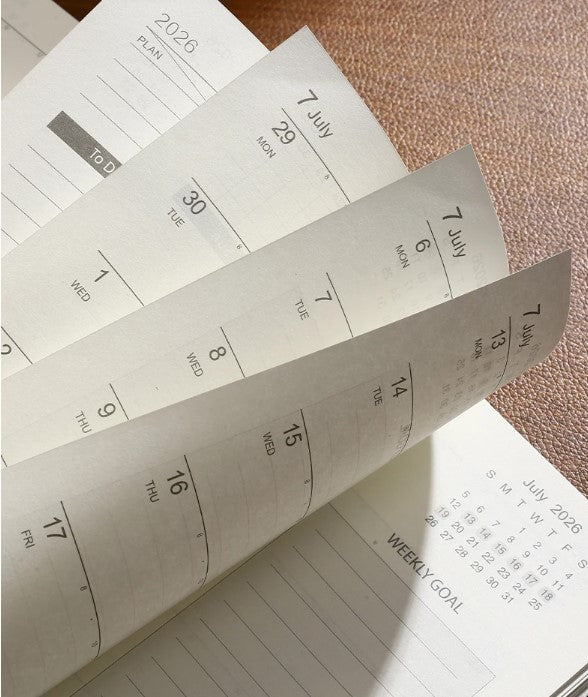 2026
PLAN
To D
7 July
29
MON
30
TUE
1
WED
2
7 July
6
MON
7
TUE
8
WED
9
THU
7 July
13
MON
14
TUE
15
WED
16
THU
17
FRI
WEEKLY GOAL
July 2026
S M T W T F S
1 2 3 4
5 6 7 8 9 10 11
12 13 14 15 16 17 18
19 20 21 22 23 24 25
26 27 28 29 30 31